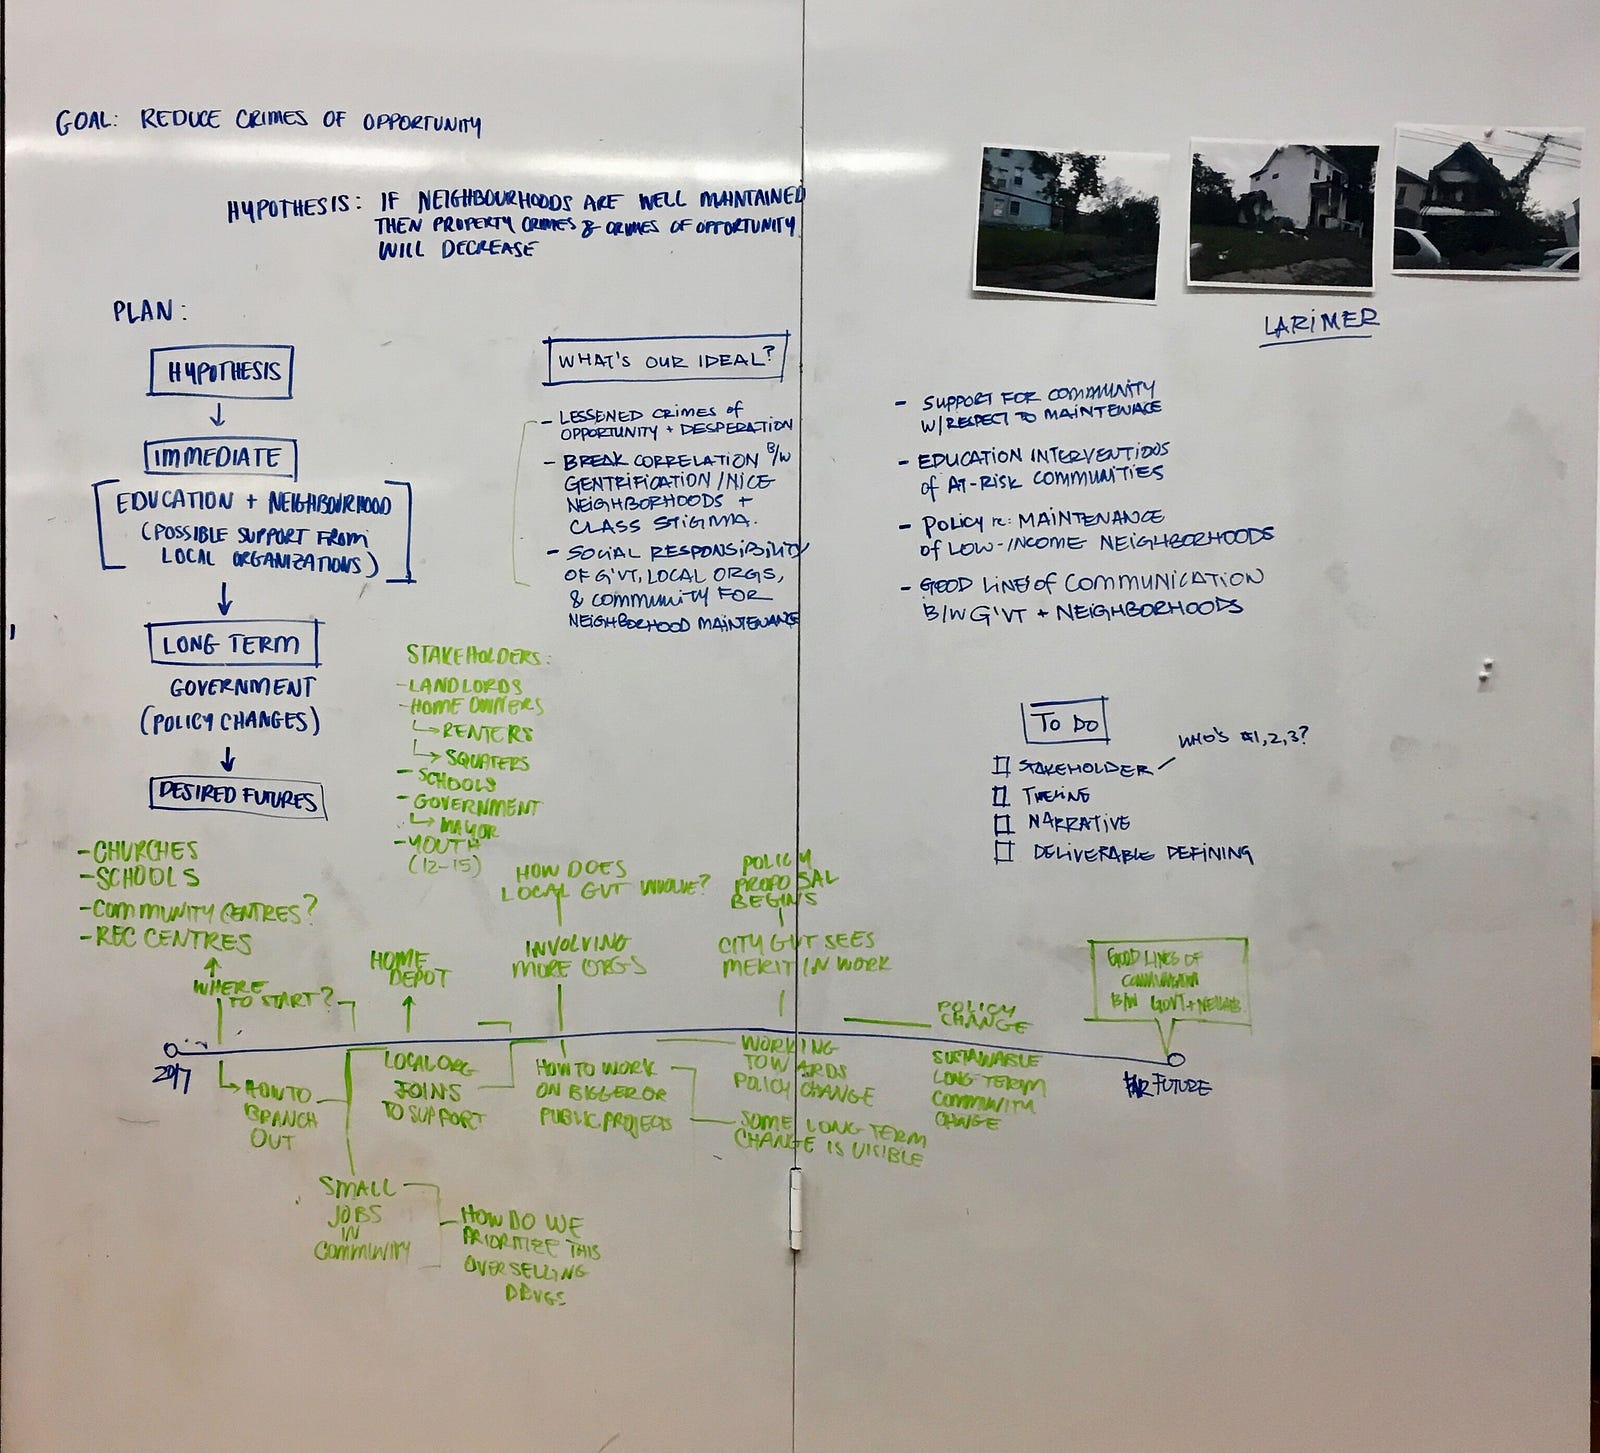 GOAL: REDUCE CRIMES OF OPPORTUNITY
HYPOTHESIS: IF NEIGHBOURHOODS ARE WELL MAINTAINED
THEN PROPERTY CRIMES & CRIMES OF OPPORTUNITY
WILL DECREASE
PLAN:
HYPOTHESIS
IMMEDIATE
EDUCATION + NEIGHBOURHOOD
(POSSIBLE SUPPORT FROM
LOCAL ORGANIZATIONS)
LONG TERM
GOVERNMENT
(POLICY CHANGES)
DESIRED FUTURES
WHAT'S OUR IDEAL?
- LESSENED CRIMES OF
OPPORTUNITY + DESPERATION
- BREAK CORRELATION B/W
GENTRIFICATION/NICE
NEIGHBORHOODS +
CLASS STIGMA.
- SOCIAL RESPONSIBILITY
OF G'VT, LOCAL ORGS,
& COMMUNITY FOR
NEIGHBORHOOD MAINTENANCE
LARIMER
- SUPPORT FOR COMMUNITY
W/RESPECT TO MAINTENACE
- EDUCATION INTERVENTIONS
of AT-RISK COMMUNITIES
- POLICY re: MAINTENANCE
of LOW-INCOME NEIGHBORHOODS
- GOOD LINES of COMMUNICATION
B/W G'VT + NEIGHBORHOODS
TO DO
STAKEHOLDER
WHO'S #1,2,3?
TIMELINE
NARRATIVE
DELIVERABLE DEFINING
STAKEHOLDERS:
- LANDLORDS
- HOME OWNERS
RENTERS
SQUATERS
- SCHOOLS
- GOVERNMENT
MAYOR
- YOUTH
(12-15)
- CHURCHES
- SCHOOLS
- COMMUNITY CENTRES?
- REC CENTRES
WHERE
TO START?
HOME
DEPOT
HOW DOES
LOCAL GVT INVOLVE?
INVOLVING
MORE ORGS
POLICY
PROPOSAL
BEGINS
CITY GVT SEES
MERIT IN WORK
POLICY
CHANGE
GOOD LINES OF
B/W GOVT + NEIGHB.
2017
HOW TO
BRANCH
OUT
LOCAL ORG
JOINS
TO SUPPORT
HOW TO WORK
ON BIGGER OR
PUBLIC PROJECTS
WORKING
TOWARDS
POLICY CHANGE
SOME LONG TERM
CHANGE IS VISIBLE
SUSTAINABLE
LONG TERM
COMMUNITY
CHANGE
FAR FUTURE
SMALL
JOBS
IN
COMMUNITY
HOW DO WE
PRIORITIZE THIS
OVER SELLING
DRUGS